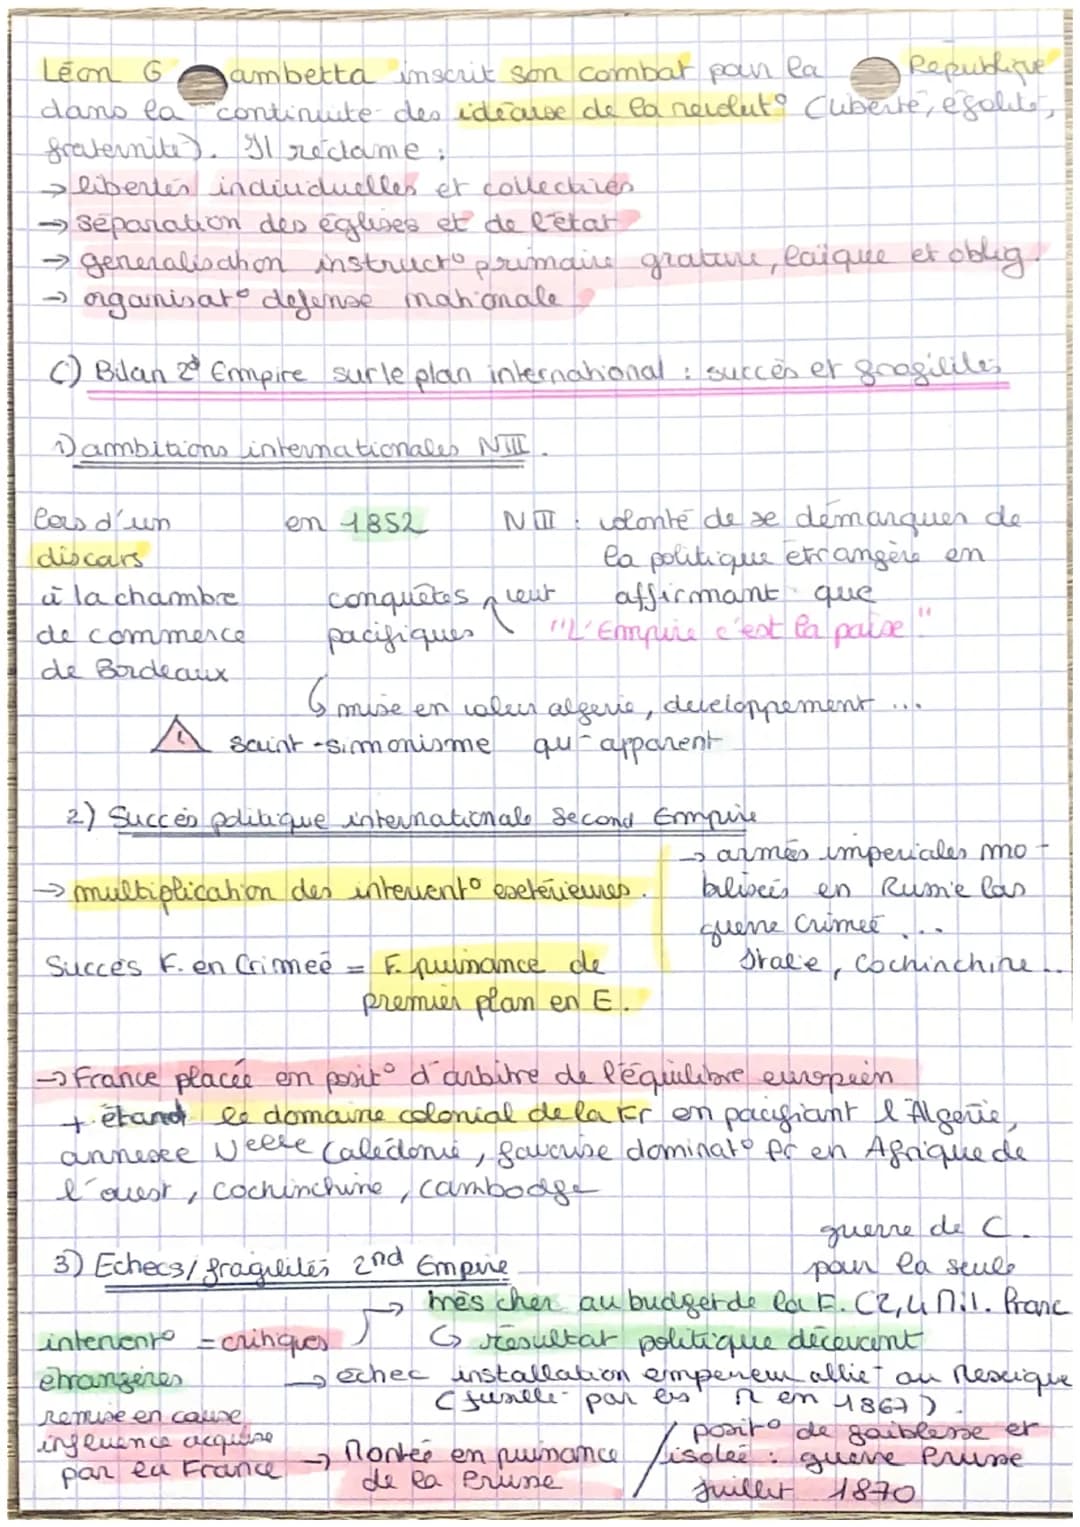 Léon Gambetta inscrit son combat pour la République
dans la continuité des idéaux de la révolut° (liberté, égalité,
fraternité). Il réclame :
→ libertés individuelles et collectives
→ séparation des églises et de l'état
→ généralisation instruct° primaire gratuite, laïque et oblig.
→ organisat° défense nationale
C) Bilan 2d Empire sur le plan international : succès et fragilités
1) ambitions internationales NIII.
lors d'un discours à la chambre de commerce de Bordeaux
en 1852
NIII : volonté de se démarquer de
la politique étrangère en
affirmant que
"L'Empire c'est la paix"
conquêtes pacifiques
veut
↳ mise en valeur algérie, développement ...
⚠ saint-simonisme qu'apparent
2) Succès politique internationale Second Empire
→ multiplication des intervent° extérieures.
→ armées impériales mo-
bilisées en Russie lors
guerre Crimée ...
Italie, Cochinchine..
Succès F. en Crimée = F. puissance de
premier plan en E.
→ France placée en posit° d'arbitre de l'équilibre européen
+ étend le domaine colonial de la Fr en pacifiant l'Algérie,
annexe Nelle Calédonie, favorise dominat° fr en Afrique de
l'ouest, Cochinchine, Cambodge
3) Echecs/fragilités 2nd Empire
guerre de C.
pour la seule
intervent° étrangères = critiques
→ très cher au budget de la F. (2,4 Mil. Franc
↳ résultat politique décevant
→ échec installation empereur allié au Mexique
(fusillé par les R en 1867).
remise en cause
influence acquise
par la France
→ Montée en puissance
de la Prusse
/ posit° de faiblesse et
isolée : guerre Prusse
Juillet 1870